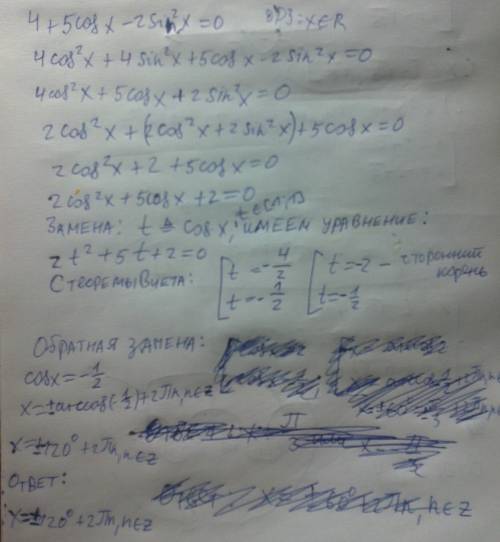 4 + 5cosx - 2sin²x = 0 ОДЗ: x∈R
4cos²x + 4sin²x + 5cosx - 2sin²x = 0
4cos²x + 5cosx + 2sin²x = 0
2cos²x + (2cos²x + 2sin²x) + 5cosx = 0
2cos²x + 2 + 5cosx = 0
2cos²x + 5cosx + 2 = 0
ЗАМЕНА: t = cosx, ИМЕЕМ УРАВНЕНИЕ:
2t² + 5t + 2 = 0
С ТЕОРЕМЫ ВИЕТА: [t = -4/2 [t = -2 - сторонний корень
[t = -1/2 [t = -1/2
ОБРАТНАЯ ЗАМЕНА:
cosx = -1/2
x = ±arccos(-1/2) + 2Пn, n∈Z
x = ±120° + 2Пn, n∈Z
ОТВЕТ:
x = ±120° + 2Пn, n∈Z
n∈Z